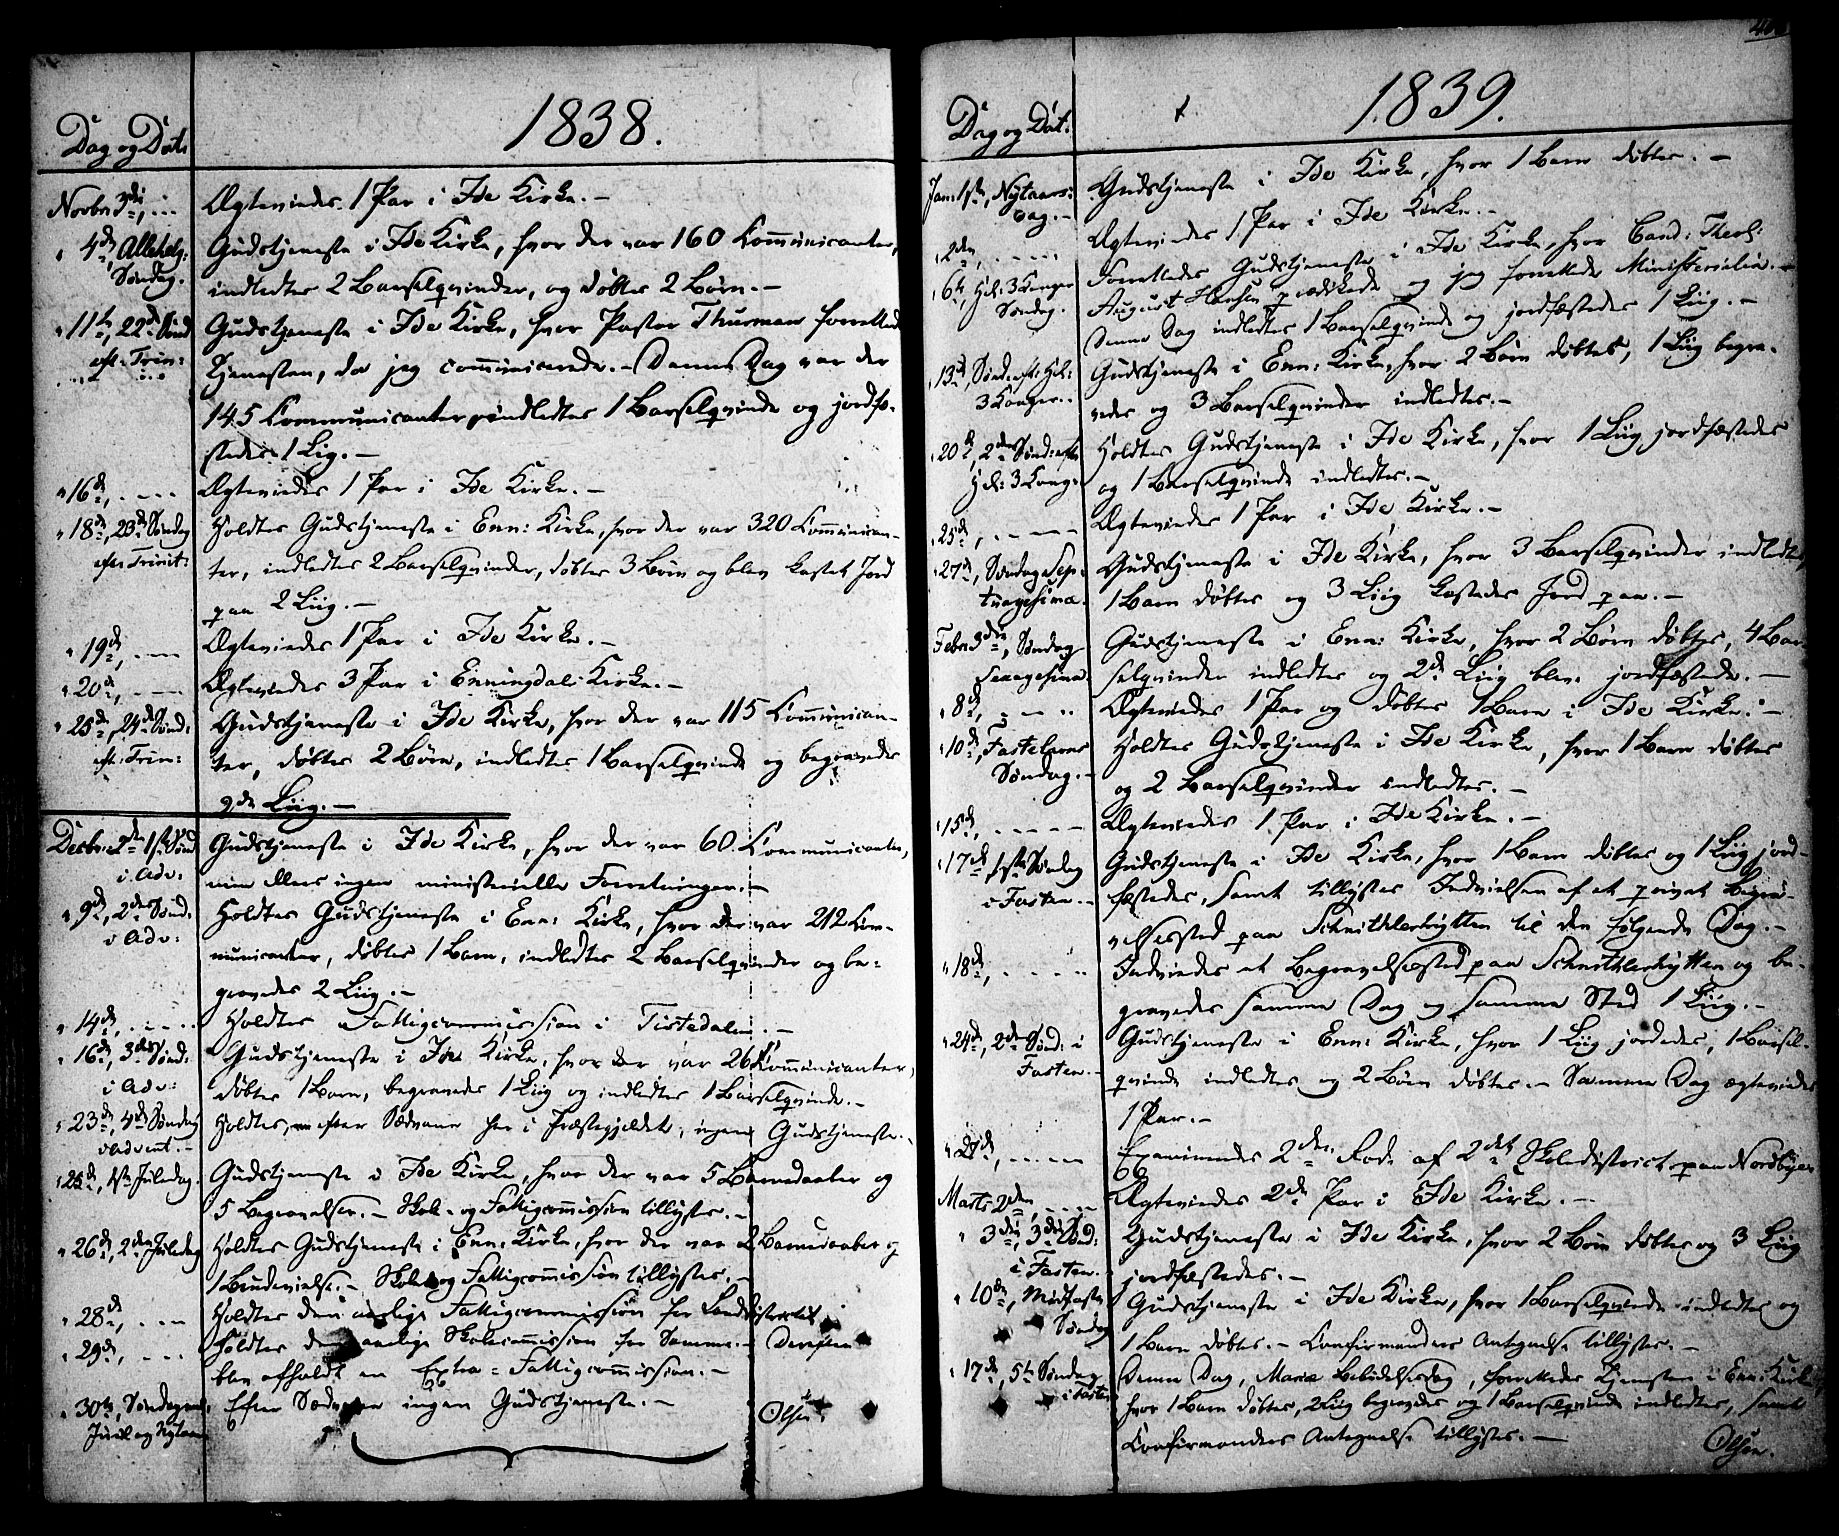 Dag og Dat:
1838.
Novbr 3die, ...
Ægteviedes 1 Par i Ide Kirke. –
" 4de, Allehelg: Søndag.
Gudstjeneste i Ide Kirke, hvor der var 160 Communicanter,
indledtes 2 Barselqvinder, og døbtes 2 Børn. –
" 11te, 22de Sønd: eft: Trin:
Gudstjeneste i Ide Kirke, hvor Pastor Thurman forrettede
Tjenesten, da jeg communicerede. – Denne Dag var der
145 Communicanter, indledtes 1 Barselqvinde og jordfæ-
stedes 1 Lig. –
" 16de, . – – –
Ægteviedes 1 Par i Ide Kirke. –
" 18de, 23de Søndag efter Trinit:
Holdtes Gudstjeneste i Enn: Kirke, hvor der var 320 Communican-
ter, indledtes 2 Barselqvinder, døbtes 3 Børn og blev kastet Jord
paa 2 Liig. –
" 19de, . – –
Ægteviedes 1 Par i Ide Kirke. –
" 20de, . – –
Ægteviedes 3 Par i Enningdals Kirke. –
" 25de, 24de Sønd: eft: Trin:
Gudstjeneste i Ide Kirke, hvor der var 115 Communican-
ter, døbtes 2 Børn, indledtes 1 Barselqvinde og begravedes
2de Liig. –
Decbr: 2den 1ste Sønd i Adv:
Gudstjeneste i Ide Kirke, hvor der var 60 Communicanter,
men ellers ingen ministerielle Forretninger. –
" 9de, 2den Sønd: i Adv:
Holdtes Gudstjeneste i Enn: Kirke, hvor der var 212 Com-
municanter, døbtes 1 Barn, indledtes 2 Barselqvinder og be-
gravedes 2 Liig. –
" 14de, . – . – . .
Holdtes Fattigcommission i Tistedalen. –
" 16de, 3die Sønd: i Adv:
Gudstjeneste i Ide Kirke, hvor der var 26 Communicanter,
døbtes 1 Barn, begravedes 1 Liig og indledtes 1 Barselqvinde. –
" 23de, 4de Søndag i Advent. –
Holdtes, efter Sædvane her i Præstegjeldet, ingen Gudstjeneste. –
" 25de, 1ste Juledag.
Gudstjeneste i Ide Kirke, hvor der var 5 Barnedaaber og
5 Begravelser. – Skole- og Fattigcommission tillystes. –
" 26de, 2den Juledag
Holdtes Gudstjeneste i Enn: Kirke, hvor der var 2 Barnedaaber og
1 Brudevielse. – Skole og Fattigcommission tillystes. –
" 28de, . – –
Holdtes den aarlige Fattigcommission for Landdistrictet
" 29de, . – –
Holdtes den aarlige Skolecommission for Samme. – Derefter
blev afholdt en Extra-Fattigcommission. –
" 30te, Søndag ml. Juul og Nytaar
Efter Sædvane ingen Gudstjeneste. –
Olsen.
Dag og Dat:
1839.
Jan: 1ste, Nytaars: Dag. –
Gudstjeneste i Ide Kirke, hvor 1 Barn døbtes. –
" 2den, . – – –
Ægteviedes 1 Par i Ide Kirke. –
" 6te, Hel: 3 Konger Søndag.
Forrettedes Gudstjeneste i Ide Kirke, hvor Cand: Theol:
August Hansen prædikede og jeg forrettede Ministerialia. –
Denne Dag indledtes 1 Barselqvinde og jordfæstedes 1 Liig. –
" 13de, Sønd: eft: Hel: 3 Konger. .
Gudstjeneste i Enn: Kirke, hvor 2 Børn døbtes, 1 Liig begra-
vedes og 3 Barselqvinder indledtes. –
" 20de, 2den Sønd: efter Hel: 3 Kong:
Holdtes Gudstjeneste i Ide Kirke, hvor 1 Liig jordfæstedes
og 1 Barselqvinde indledtes. –
" 25de, . – – –
Ægteviedes 1 Par i Ide Kirke. –
" 27de, Søndag Sep- tuagesima.
Gudstjeneste i Ide Kirke, hvor 3 Barselqvinder indledtes,
1 Barn døbtes og 3 Liig kastedes Jord paa. –
Febr: 3die, Søndag Sexagesima
Gudstjeneste i Enn: Kirke, hvor 2 Børn døbtes, 4 Bar-
selqvinder indledtes og 2de Liig blev jordfæstede. –
" 8de, . – . .
Ægteviedes 1 Par og døbtes 1 Barn i Ide Kirke. –
" 10de, Fastelavns Søndag. –
Holdtes Gudstjeneste i Ide Kirke, hvor 1 Barn døbtes
og 2 Barselqvinder indledtes. –
" 15de, . – – – –
Ægteviedes 1 Par i Ide Kirke. –
" 17de, 1ste Søndag i Fasten. .
Gudstjeneste i Ide Kirke, hvor 1 Barn døbtes og 1 Liig jord-
fæstedes, samt tillystes Indvielsen af et privat Begra-
velsessted paa Schnitlerhytten til den følgende Dag. –
" 18de, . . – . .
Indviedes et Begravelsessted paa Schnitlerhytten og be-
gravedes samme Dag og samme Sted 1 Liig. –
" 24de, 2den Sønd: i Fasten. –
Gudstjeneste i Enn: Kirke, hvor 1 Liig jordedes, 1 Barsel-
qvinde indledtes og 2 Børn døbtes. – Samme Dag ægteviedes
1 Par. –
" 27de, . – – –
Examinerdes 2den Rode af 2det Skoledistrict paa Nordbyen
Marts 2den, . – . .
Ægteviedes 2de Par i Ide Kirke. –
" 3die, 3die Sønd: i Fasten. –
Gudstjeneste i Ide Kirke, hvor 2 Børn døbtes og 3 Liig
jordfæstedes. –
" 10de, Midfaste Søndag
Gudstjeneste i Ide Kirke, hvor 1 Barselqvinde indledtes og
1 Barn døbtes. – Confirmanders Antegnelse tillystes. –
" 17de, 5te Søndag i Fasten
Denne Dag, Mariæ Bebudelsesdag, forrettedes Tjenesten i Enn: Kirke
hvor 1 Barn døbtes, 2 Liig begravedes og 1 Barselqvinde indledtes, samt
Confirmanders Antegnelse tillystes. –
Olsen.